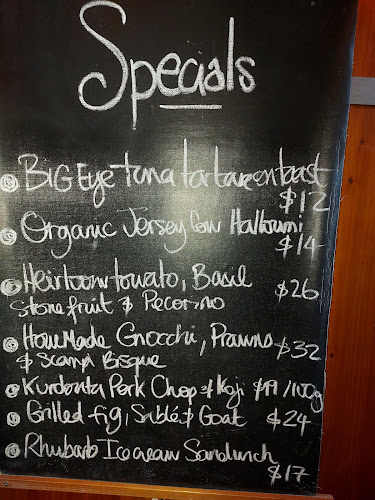 Specials
BIG Eye tuna tartare on toast
$12
Organic Jersey Cow Halloumi
$14
Heirloom tomato, Basil
Stone fruit & Pecorino $26
House Made Gnocchi, Prawns
& Scampi Bisque $32
Kurobuta Pork Chop & Koji $19/100g
Grilled fig, Sablé & Goat $24
Rhubarb Icecream Sandwich
$17